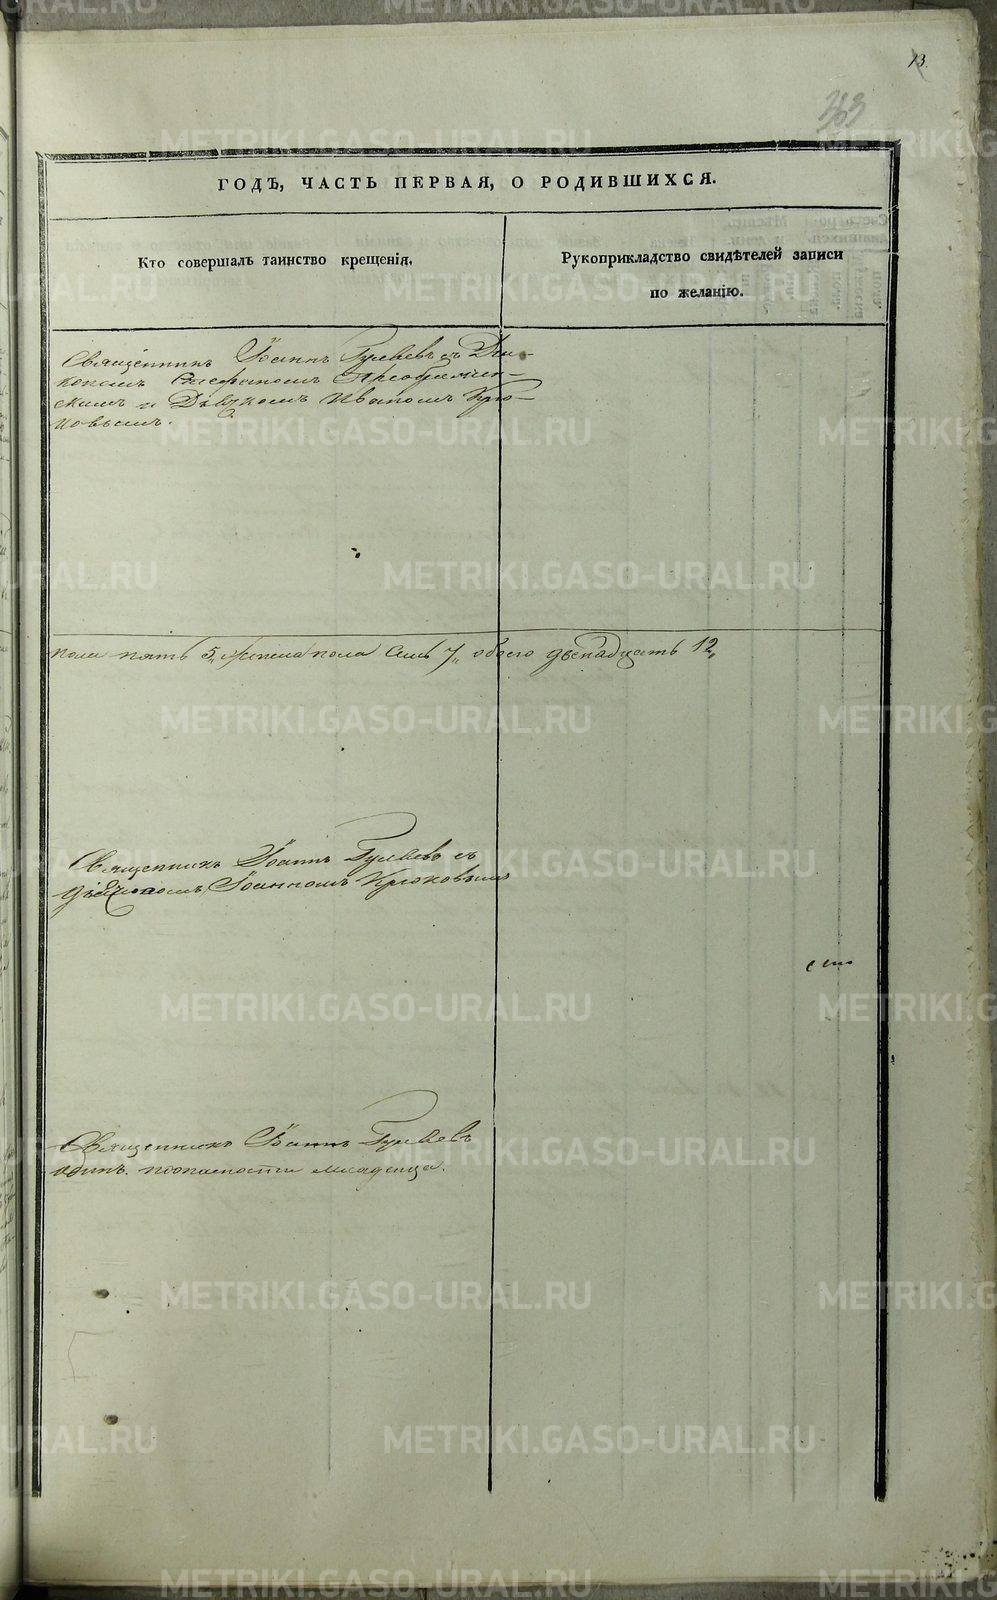 13.
363
ГОДЪ, ЧАСТЬ ПЕРВАЯ, О РОДИВШИХСЯ.
Кто совершалъ таинство крещенія.
Рукоприкладство свидѣтелей записи
по желанію.
Священникъ Іоаннъ Гуляевъ съ Діа-
кономъ Стефаномъ Преображен-
скимъ и Дьячкомъ Иваномъ Крю-
ковымъ.
пола пять 5, женска пола семь 7, обоего двенадцать 12,
Священникъ Іоаннъ Гуляевъ съ
дьячкомъ Іоанномъ Крюковымъ
Священникъ Іоаннъ Гуляевъ
одинъ по опасности младенца.
METRIKI.GASO-URAL.RU